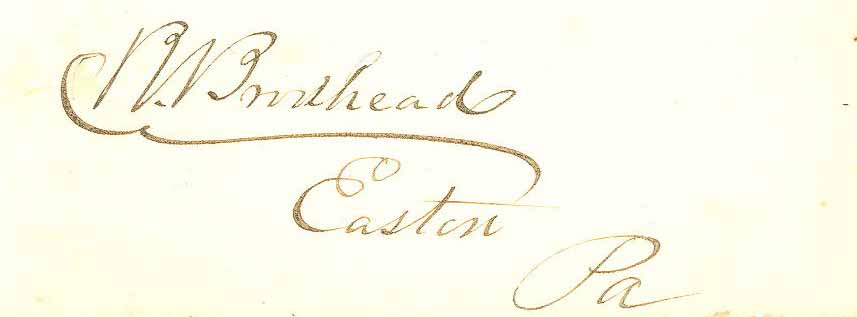 R. Brodhead
Easton
Pa